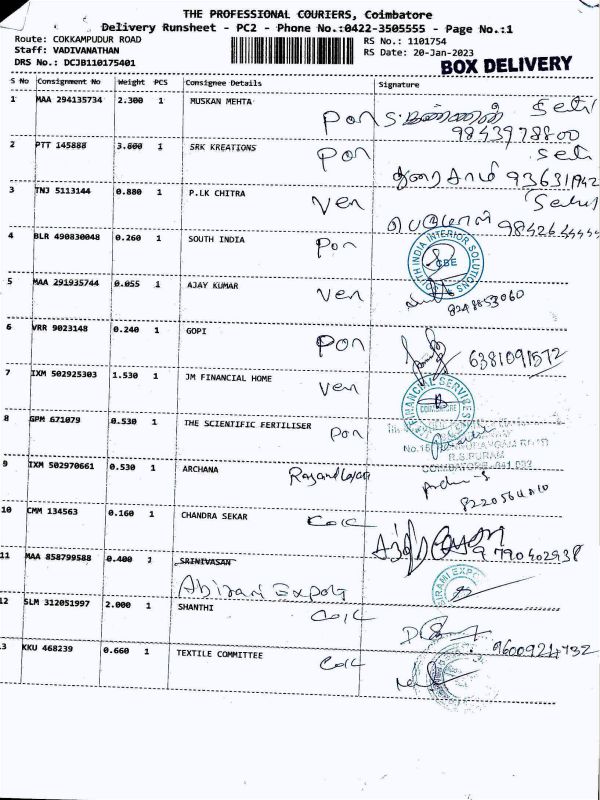 THE PROFESSIONAL COURIERS, Coimbatore
Delivery Runsheet - PC2 - Phone No.:0422-3505555 - Page No.:1
Route: COKKAMPUDUR ROAD
RS No.: 1101754
Staff: VADIVANATHAN
RS Date: 20-Jan-2023
DRS No.: DCJB110175401
BOX DELIVERY
S No Consignment No Weight PCS Consignee Details Signature
1 MAA 294135734 2.300 1 MUSKAN MEHTA
Pon
9843978800
2 PTT 145888 3.800 1 SRK KREATIONS
Pon
துரைசாமி
3 TNJ 5113144 0.880 1 P.LK CHITRA
Ven
4 BLR 490830048 0.260 1 SOUTH INDIA
Pon
SOUTH INDIA INTERIOR SOLUTIONS
CBE
5 MAA 291935744 0.055 1 AJAY KUMAR
Ven
8248853060
6 VRR 9023148 0.240 1 GOPI
Pon
6381091572
7 IXM 502925303 1.530 1 JM FINANCIAL HOME
Ven
FINANCIAL SERVICES
COIMBATORE
8 GPM 671079 0.530 1 THE SCIENTIFIC FERTILISER
Pon
R.S.PURAM
9 IXM 502970661 0.530 1 ARCHANA
10 CMM 134563 0.160 1 CHANDRA SEKAR
9790402938
11 MAA 858799588 0.400 1 SRINIVASAN
Abirami Expots
12 SLM 312051997 2.000 1 SHANTHI
13 KKU 468239 0.660 1 TEXTILE COMMITTEE